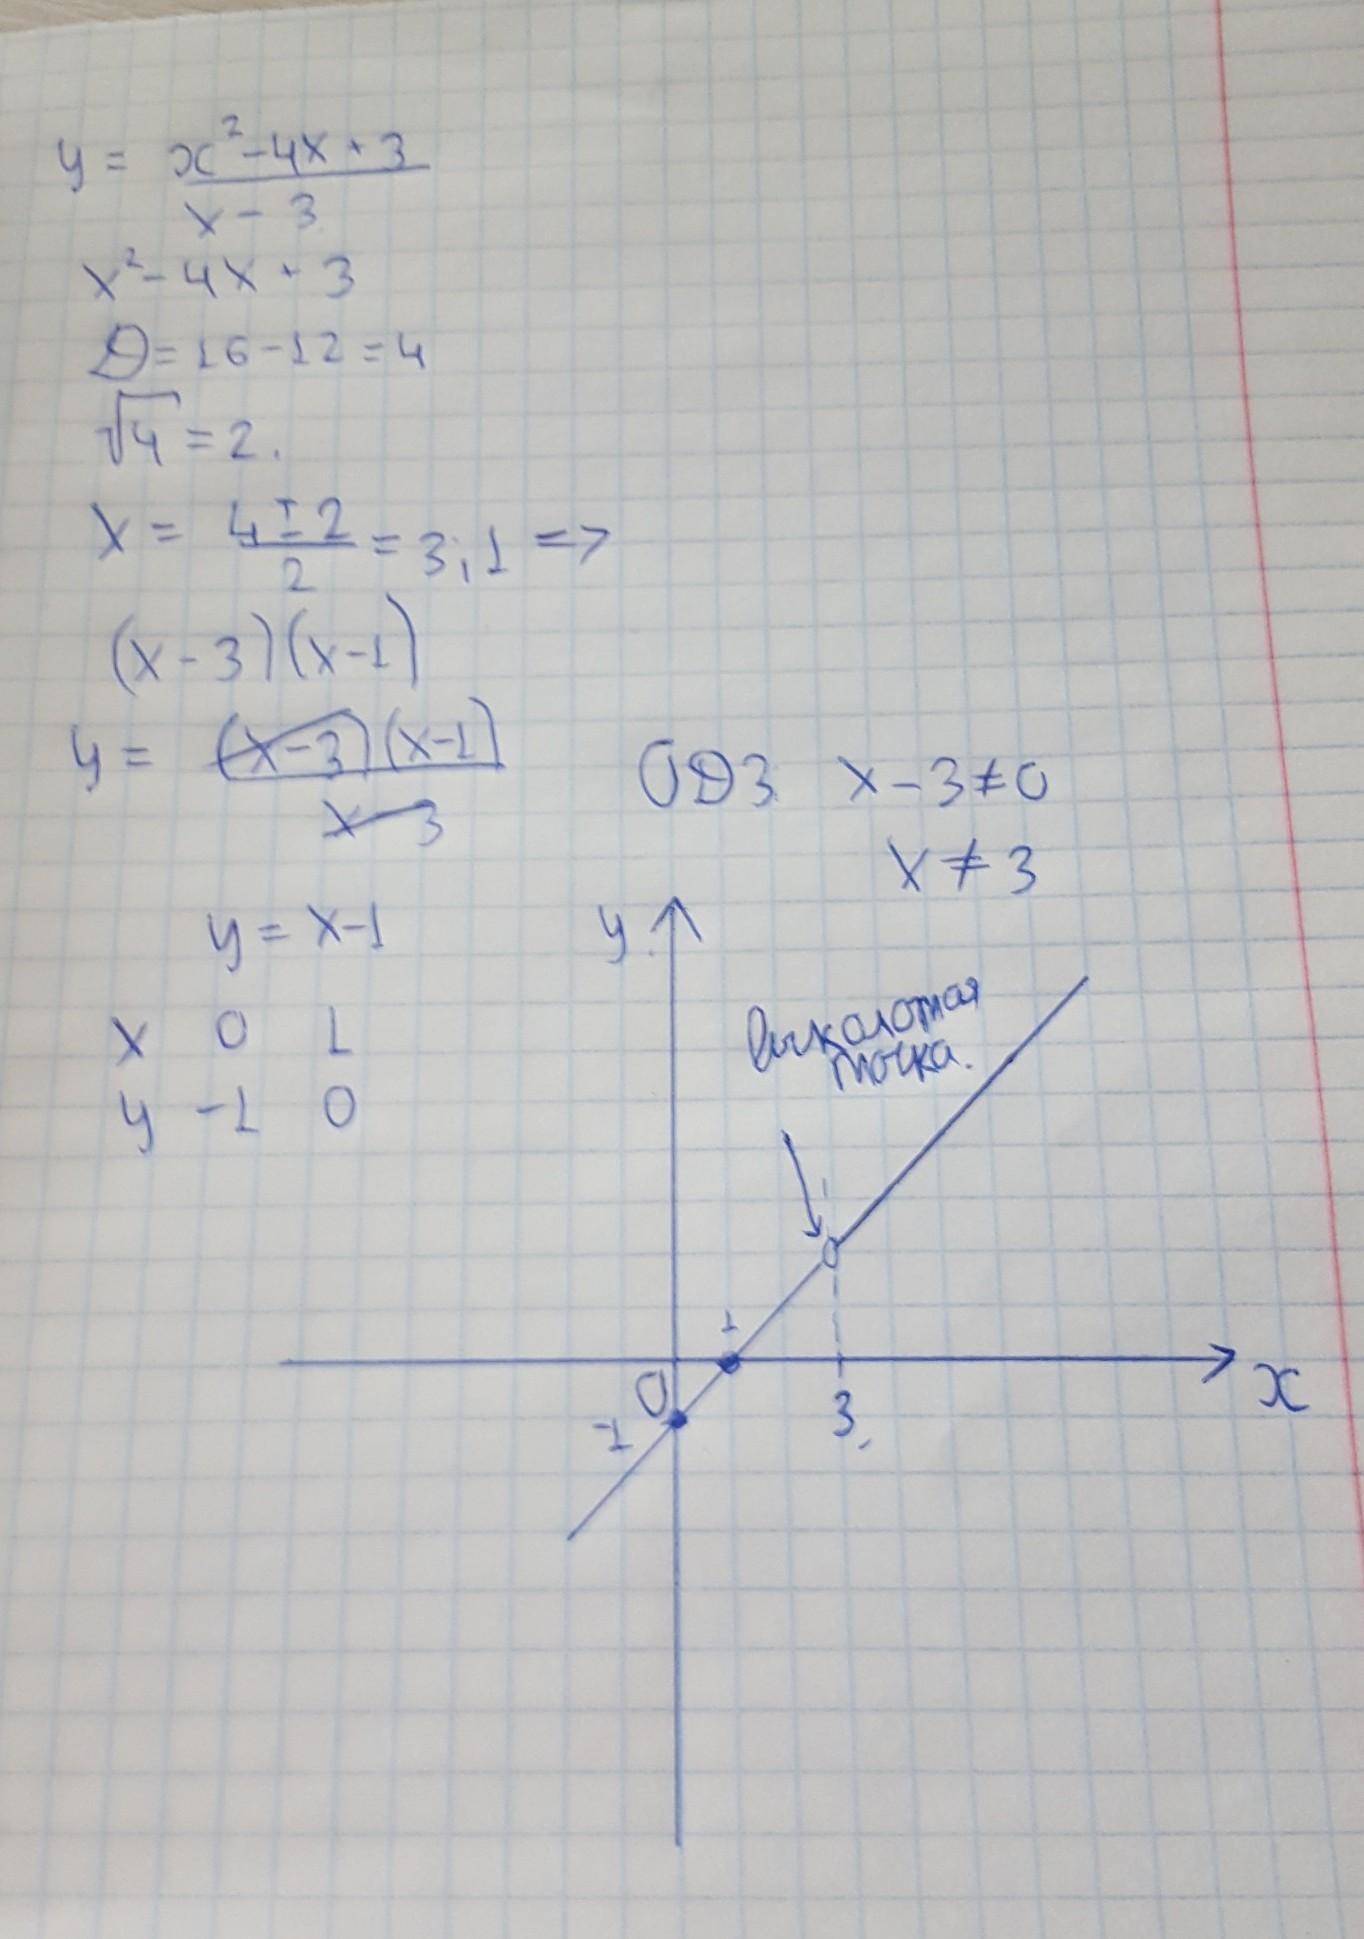 y = x² - 4x + 3 / x - 3
x² - 4x + 3
D = 16 - 12 = 4
√4 = 2.
x = 4 ± 2 / 2 = 3; 1 =>
(x - 3)(x - 1)
y = (x - 3)(x - 1) / x - 3
ОДЗ x - 3 ≠ 0
x ≠ 3
y = x - 1
x 0 1
y -1 0
y
выколотая
точка.
1
0
-1
3
x